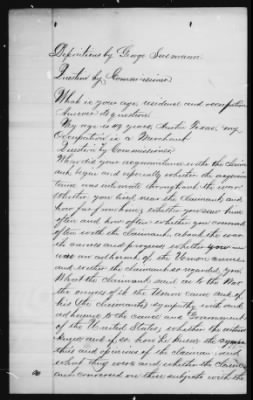 Depositions by George Sasmann
Question by Commissioner
What is your age, residence and occupation
Answer to question
My age is 47 years, Austin Texas, my
Occupation is a Merchant
Question by Commissioner
When did your acquaintance with the claim
ant begin and especially whether the acquain
tance was intimate throughout the war
Whether you lived near the claimant, and
how far from him, whether you saw him
often and how often, whether you conversed
often with the claimant, about the war
its causes and progress, whether you
was an adherent of the Union cause
and whether the claimant so regarded you,
What the claimant said as to the War
the causes of it the Union cause and of
his (the claimants) sympathy with and
adherence to the cause and Government
of the United States, whether the witness
knows and if so how he knew the sympa
thies and opinions of the claimant and
what they were and whether the claim
ant conversed on these subjects with the